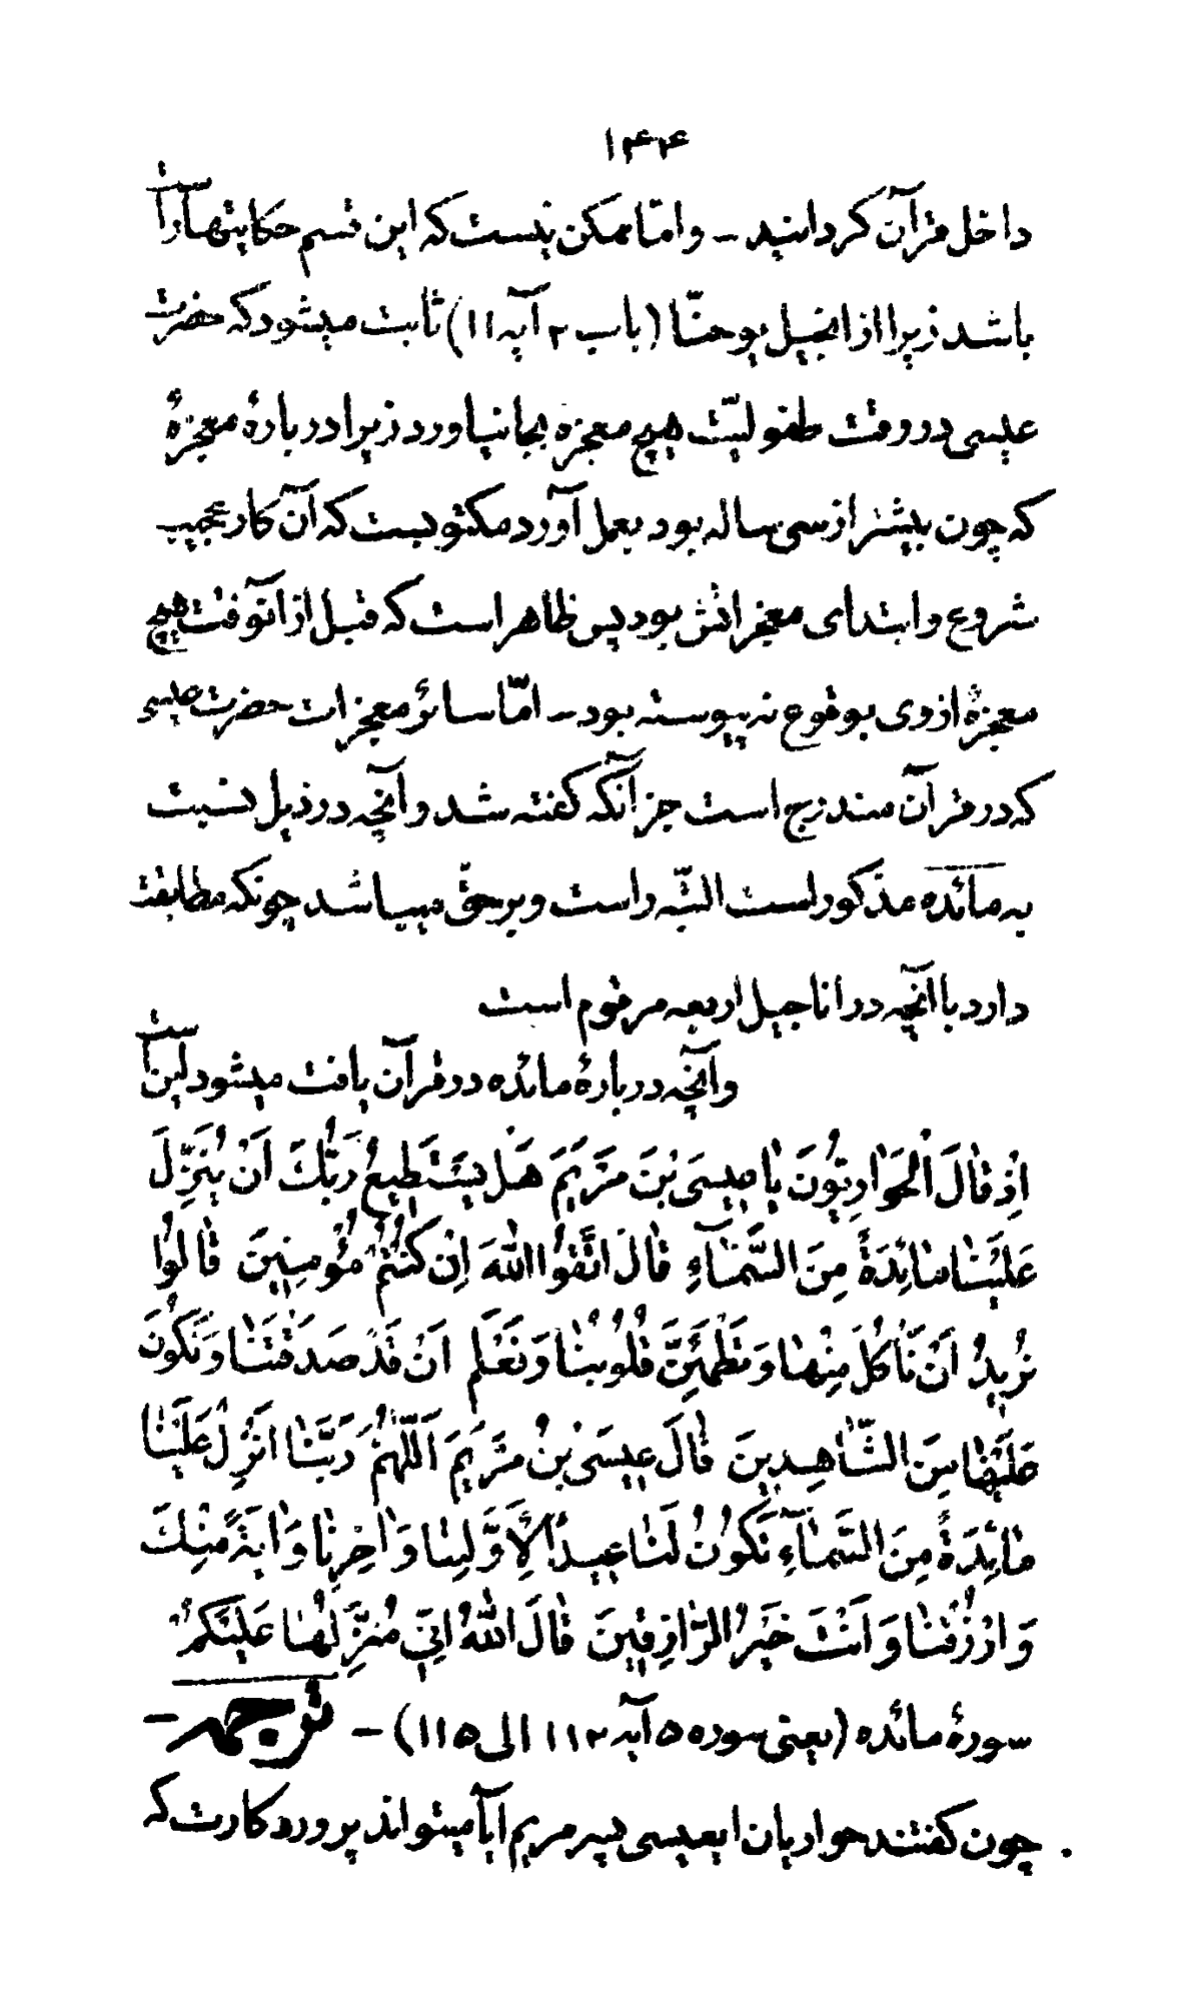 ۱۴۴
داخل قرآن گردانید - و امّا ممکن نیست که این قسم حکایتها راست
باشد زیرا از انجیل یوحنّا (باب ۲ آیه ۱۱) ثابت میشود که حضرت
عیسی در وقت طفولیّت هیچ معجزه بجا نیاورد زیرا دربارهٔ معجزهٔ
که چون بیشتر از سی ساله بود بعمل آورد مکتوبست که آن کار عجیب
شروع و ابتدای معجزاتش بود پس ظاهر است که قبل از آنوقت هیچ
معجزهٔ از وی بوقوع نه پیوسته بود - امّا سائر معجزات حضرت عیسی
که در قرآن مندرج است جز آنکه گفته شد و آنچه در ذیل نسبت
به مائده مذکور است البتّه راست و برحقّ میباشد چونکه مطابقت
دارد با آنچه در اناجیل اربعه مرقوم است
و آنچه دربارهٔ مائده در قرآن یافت میشود اینست
اِذْ قٰالَ الْحَوٰارِیّوُنَ یٰا عیسَی بْنَ مَرْیَمَ هَلْ یَسْتَطیعُ رَبُّكَ اَنْ یُنَزِّلَ
عَلَیْنٰا مٰائِدَةً مِنَ السَّمٰآءِ قٰالَ اتَّقوُا اللّٰهَ اِنْ كُنْتُمْ مُؤْمِنینَ قٰالوُا
نُریدُ اَنْ نَأْكُلَ مِنْهٰا وَ تَطْمَئِنَّ قُلوُبُنٰا وَ نَعْلَمَ اَنْ قَدْ صَدَقْتَنٰا وَ نَكوُنَ
عَلَیْهٰا مِنَ الشّٰاهِدینَ قٰالَ عیسَی بْنُ مَرْیَمَ اَللّٰهُمَّ رَبَّنٰا اَنْزِلْ عَلَیْنٰا
مٰائِدَةً مِنَ السَّمٰآءِ تَكوُنُ لَنٰا عیداً لِاَوَّلِنٰا وَ اٰخِرِنٰا وَ اٰیَةً مِنْكَ
وَ ارْزُقْنٰا وَ اَنْتَ خَیْرُ الرّٰازِقینَ قٰالَ اللّٰهُ اِنّی مُنَزِّلُهٰا عَلَیْكُمْ
سورهٔ مائده (یعنی سوره ۵ آیه ۱۱۲ الی ۱۱۵) - ترجمه -
چون گفتند حواریان ایعیسی پسر مریم آیا میتواند پروردگارت که